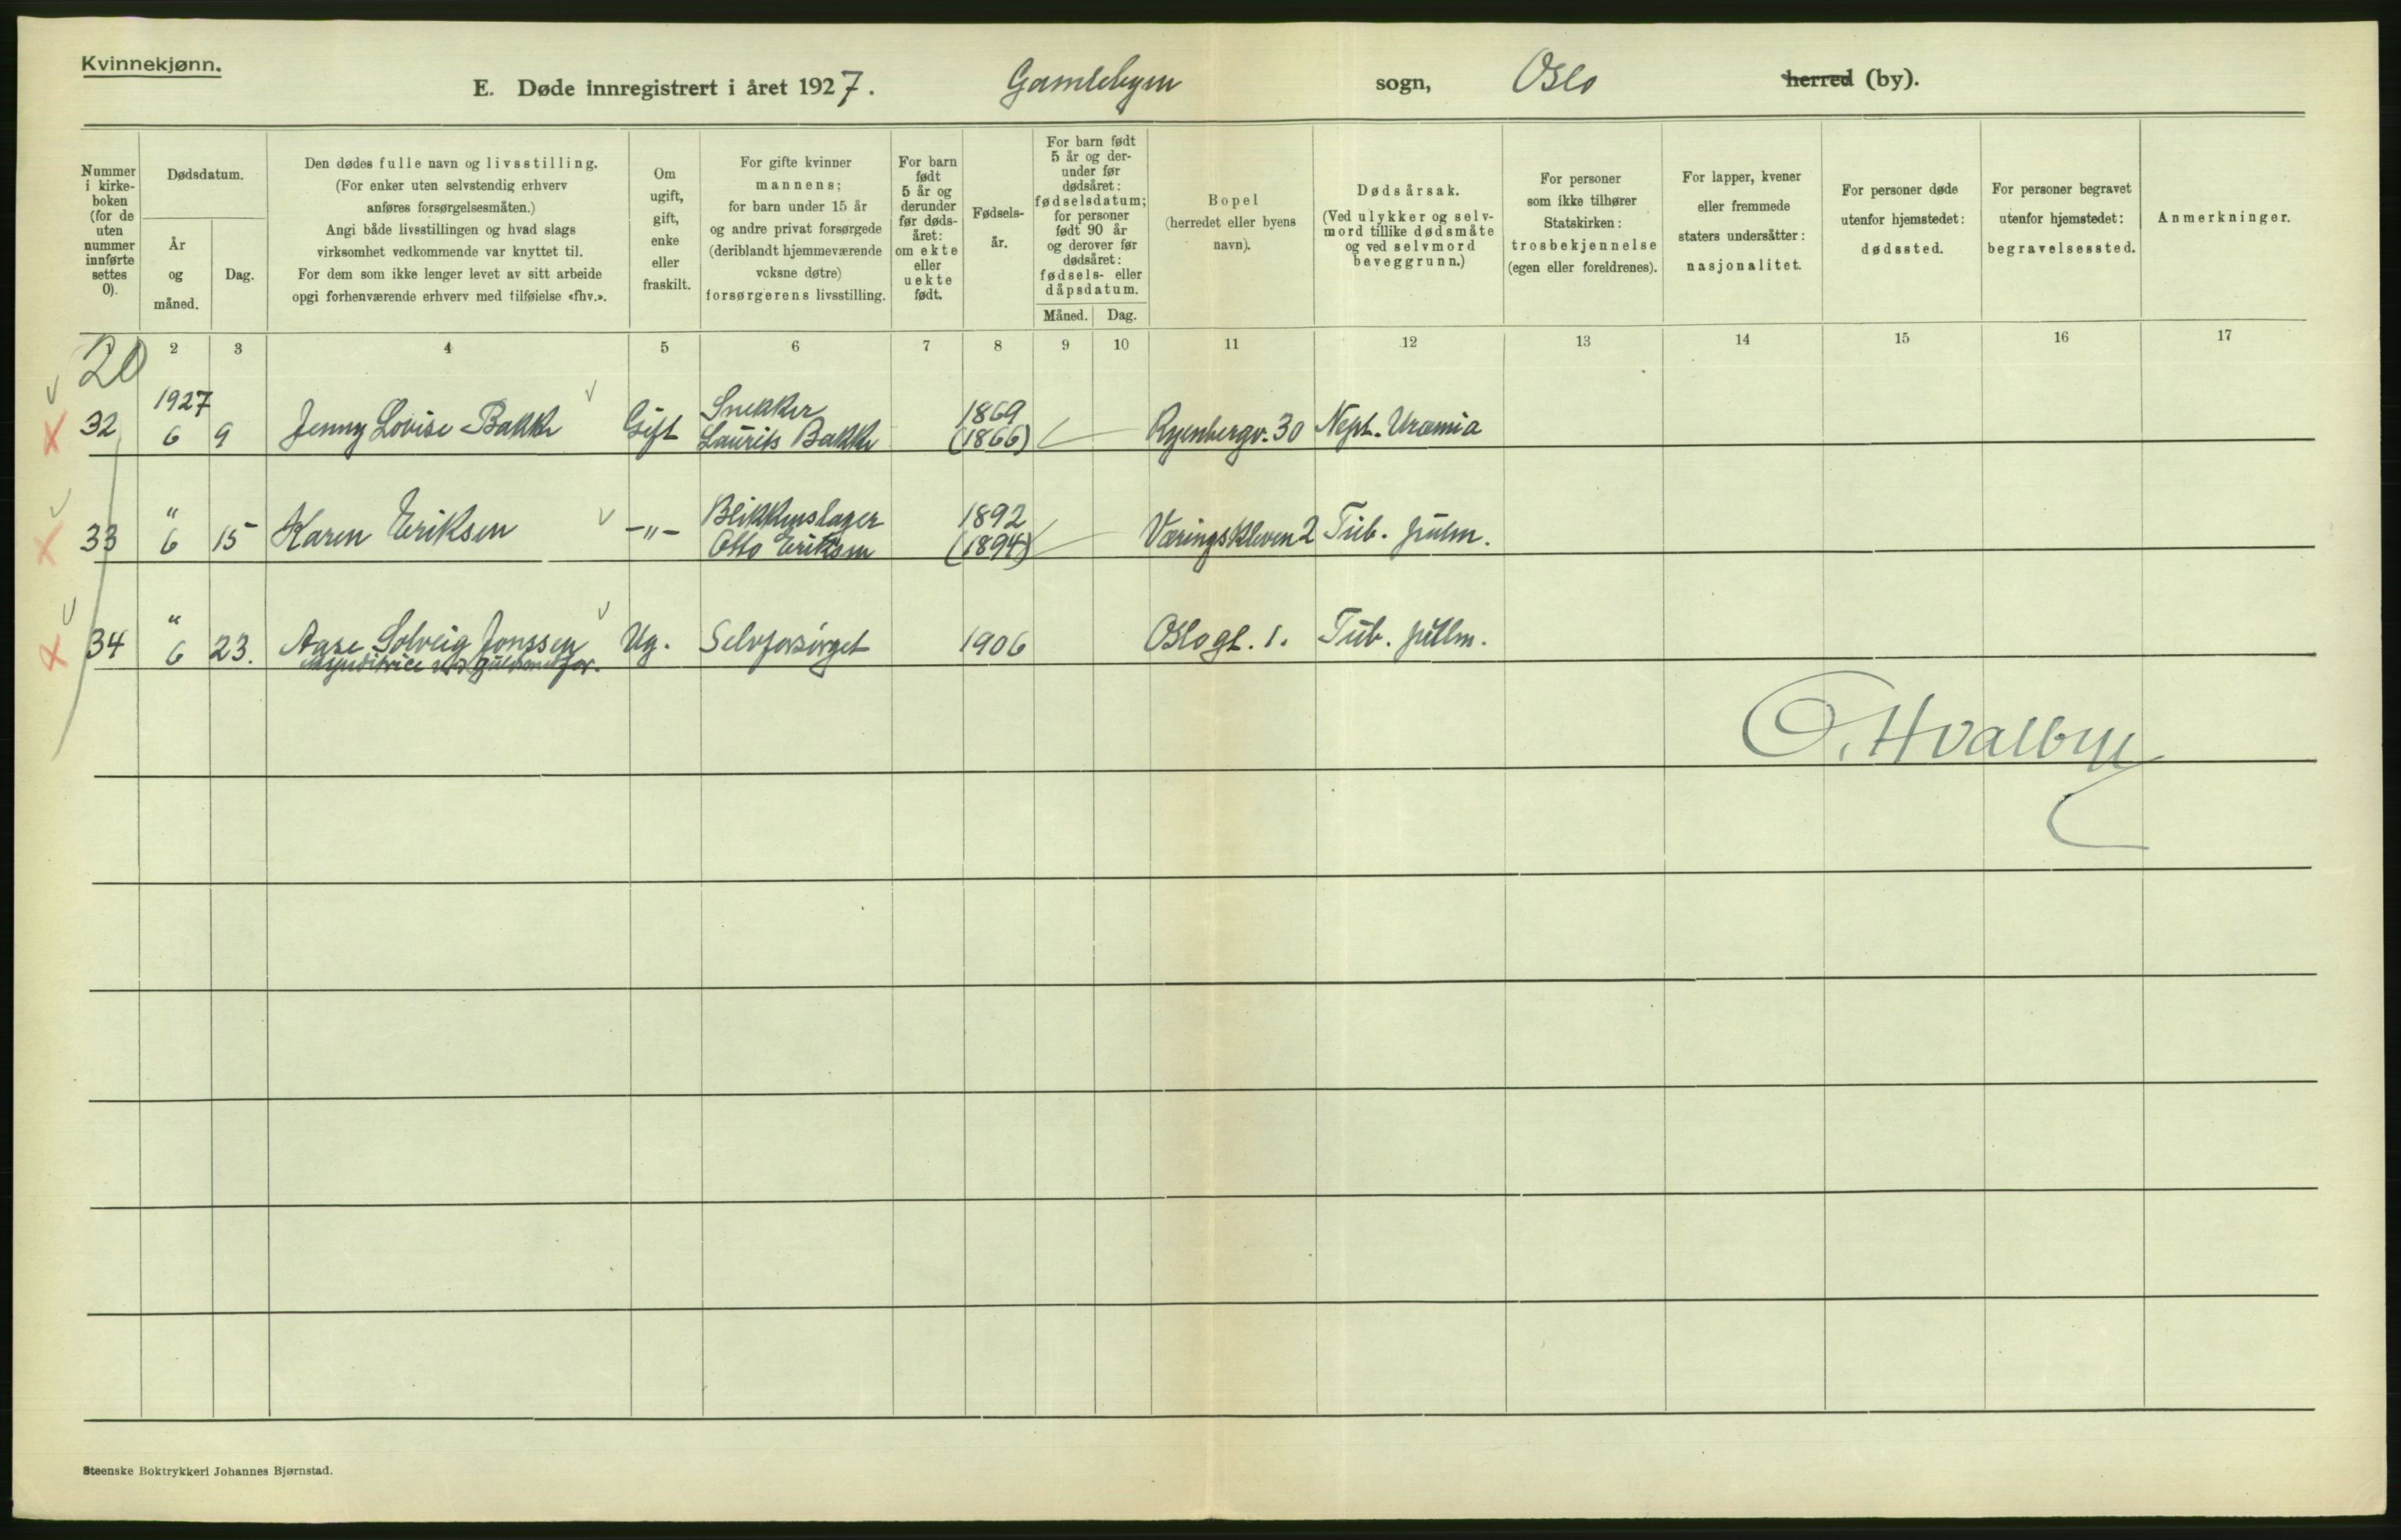 Kvinnekjønn.
E. Døde innregistrert i året 1927. Gamlebyen sogn, Oslo herred (by).
Nummer i kirke-boken (for de uten nummer innførte settes 0).
Dødsdatum.
År og måned.
Dag.
Den dødes fulle navn og livsstilling.
(For enker uten selvstendig erhverv
anføres forsørgelsesmåten.)
Angi både livsstillingen og hvad slags
virksomhet vedkommende var knyttet til.
For dem som ikke lenger levet av sitt arbeide
opgi forhenværende erhverv med tilføielse «fhv.».
Om
ugift,
gift,
enke
eller
fraskilt.
For gifte kvinner
mannens;
for barn under 15 år
og andre privat forsørgede
(deriblandt hjemmeværende
voksne døtre)
forsørgerens livsstilling.
For barn
født
5 år og
derunder
før døds-
året:
om ekte
eller
uekte
født.
Fødsels-
år.
For barn født
5 år og der-
under før
dødsåret:
fødselsdatum;
for personer
født 90 år
og derover før
dødsåret:
fødsels- eller
dåpsdatum.
Måned. Dag.
Bopel
(herredet eller byens
navn).
Dødsårsak.
(Ved ulykker og selv-
mord tillike dødsmåte
og ved selvmord
beveggrunn.)
For personer
som ikke tilhører
Statskirken:
trosbekjennelse
(egen eller foreldrenes).
For lapper, kvener
eller fremmede
staters undersåtter:
nasjonalitet.
For personer døde
utenfor hjemstedet:
dødssted.
For personer begravet
utenfor hjemstedet:
begravelsessted.
Anmerkninger.
2 3 4 5 6 7 8 9 10 11 12 13 14 15 16 17
20
1927 Snekker 1869
32 6 9 Jenny Lovise Bakke Gift Laurits Bakke (1866) Ryenbergv. 30 Neph. Uræmia
" Blikkenslager 1892
33 6 15 Karen Eriksen -"- Otto Eriksen (1894) Væringskleven 2 Tub. pulm.
"
34 6 23. Aase Solveig Jonssen Ug. Selvforsørget 1906 Oslogt. 1. Tub. pullm.
O. Hvalbye
Steenske Boktrykkeri Johannes Bjørnstad.